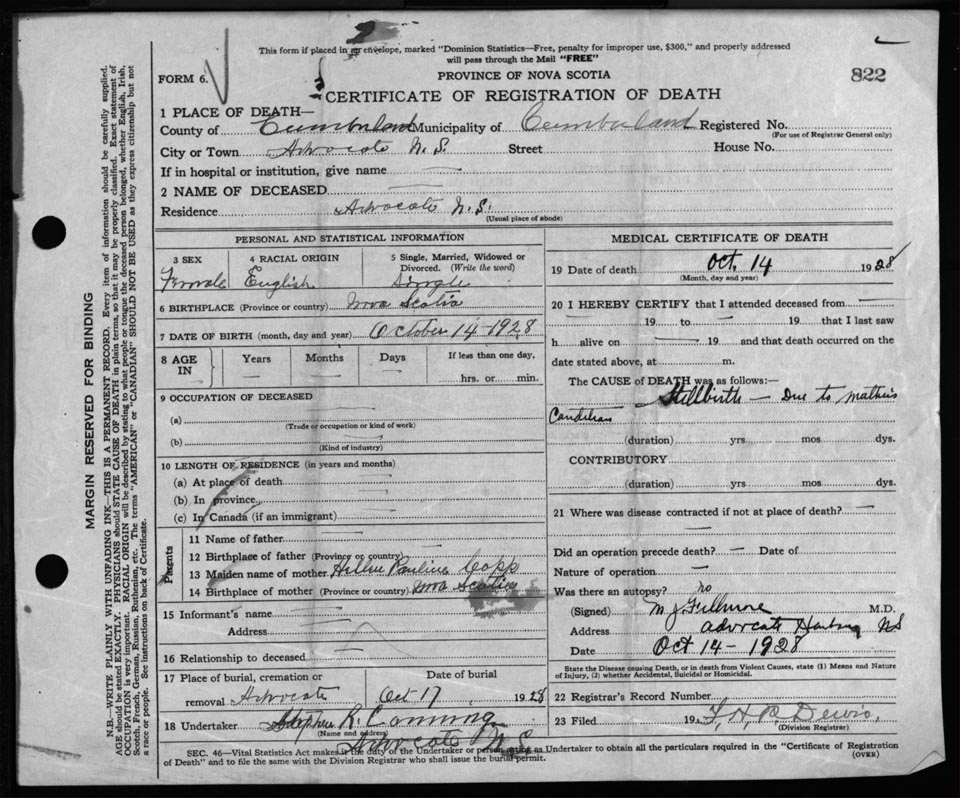 This form if placed in an envelope, marked "Dominion Statistics—Free, penalty for improper use, $300," and properly addressed
will pass through the Mail "FREE"
FORM 6.
PROVINCE OF NOVA SCOTIA
822
CERTIFICATE OF REGISTRATION OF DEATH
1 PLACE OF DEATH—
County of Cumberland Municipality of Cumberland Registered No.
(For use of Registrar General only)
City or Town Advocate N.S. Street House No.
If in hospital or institution, give name
2 NAME OF DECEASED
Residence Advocate N.S.
(Usual place of abode)
PERSONAL AND STATISTICAL INFORMATION
3 SEX 4 RACIAL ORIGIN 5 Single, Married, Widowed or
Divorced. (Write the word)
Female English Single
6 BIRTHPLACE (Province or country) Nova Scotia
7 DATE OF BIRTH (month, day and year) October 14-1928
8 AGE IN Years Months Days If less than one day,
hrs. or min.
9 OCCUPATION OF DECEASED
(a)
(Trade or occupation or kind of work)
(b)
(Kind of industry)
10 LENGTH OF RESIDENCE (in years and months)
(a) At place of death
(b) In province
(c) In Canada (if an immigrant)
Parents
11 Name of father
12 Birthplace of father (Province or country)
13 Maiden name of mother Pauline Copp
14 Birthplace of mother (Province or country) Nova Scotia
15 Informant's name
Address
16 Relationship to deceased
17 Place of burial, cremation or Date of burial
removal Advocate Oct 17 1928
18 Undertaker Stephen R. Canning
(Name and address)
Advocate N.S.
MEDICAL CERTIFICATE OF DEATH
19 Date of death Oct. 14 1928
(Month, day and year)
20 I HEREBY CERTIFY that I attended deceased from
19 to 19 that I last saw
h alive on 19 and that death occurred on the
date stated above, at m.
The CAUSE of DEATH was as follows:—
Stillbirth — Due to mothers
Condition
(duration) yrs mos dys.
CONTRIBUTORY
(duration) yrs mos dys.
21 Where was disease contracted if not at place of death?
Did an operation precede death? — Date of
Nature of operation —
Was there an autopsy? no
(Signed) M J Fillmore M.D.
Address Advocate Harbour NS
Date Oct 14 - 1928
State the Disease causing Death, or in death from Violent Causes, state (1) Means and Nature
of Injury, (2) whether Accidental, Suicidal or Homicidal.
22 Registrar's Record Number
23 Filed 19
(Division Registrar)
SEC. 46—Vital Statistics Act makes it the duty of the Undertaker or person acting as Undertaker to obtain all the particulars required in the "Certificate of Registration
of Death" and to file the same with the Division Registrar who shall issue the burial permit.
(OVER)
MARGIN RESERVED FOR BINDING
N.B.—WRITE PLAINLY WITH UNFADING INK—THIS IS A PERMANENT RECORD. Every item of information should be carefully supplied.
AGE should be stated EXACTLY. PHYSICIANS should STATE CAUSE OF DEATH in plain terms, so that it may be properly classified. Exact statement of
OCCUPATION is very important. RACIAL ORIGIN will be described by stating to what people or tongue the deceased person belonged, whether English, Irish,
Scotch, French, German, Russian, Ruthenian, etc. The terms "AMERICAN" or "CANADIAN" SHOULD NOT BE USED as they express citizenship but not
a race or people. See instructions on back of Certificate.